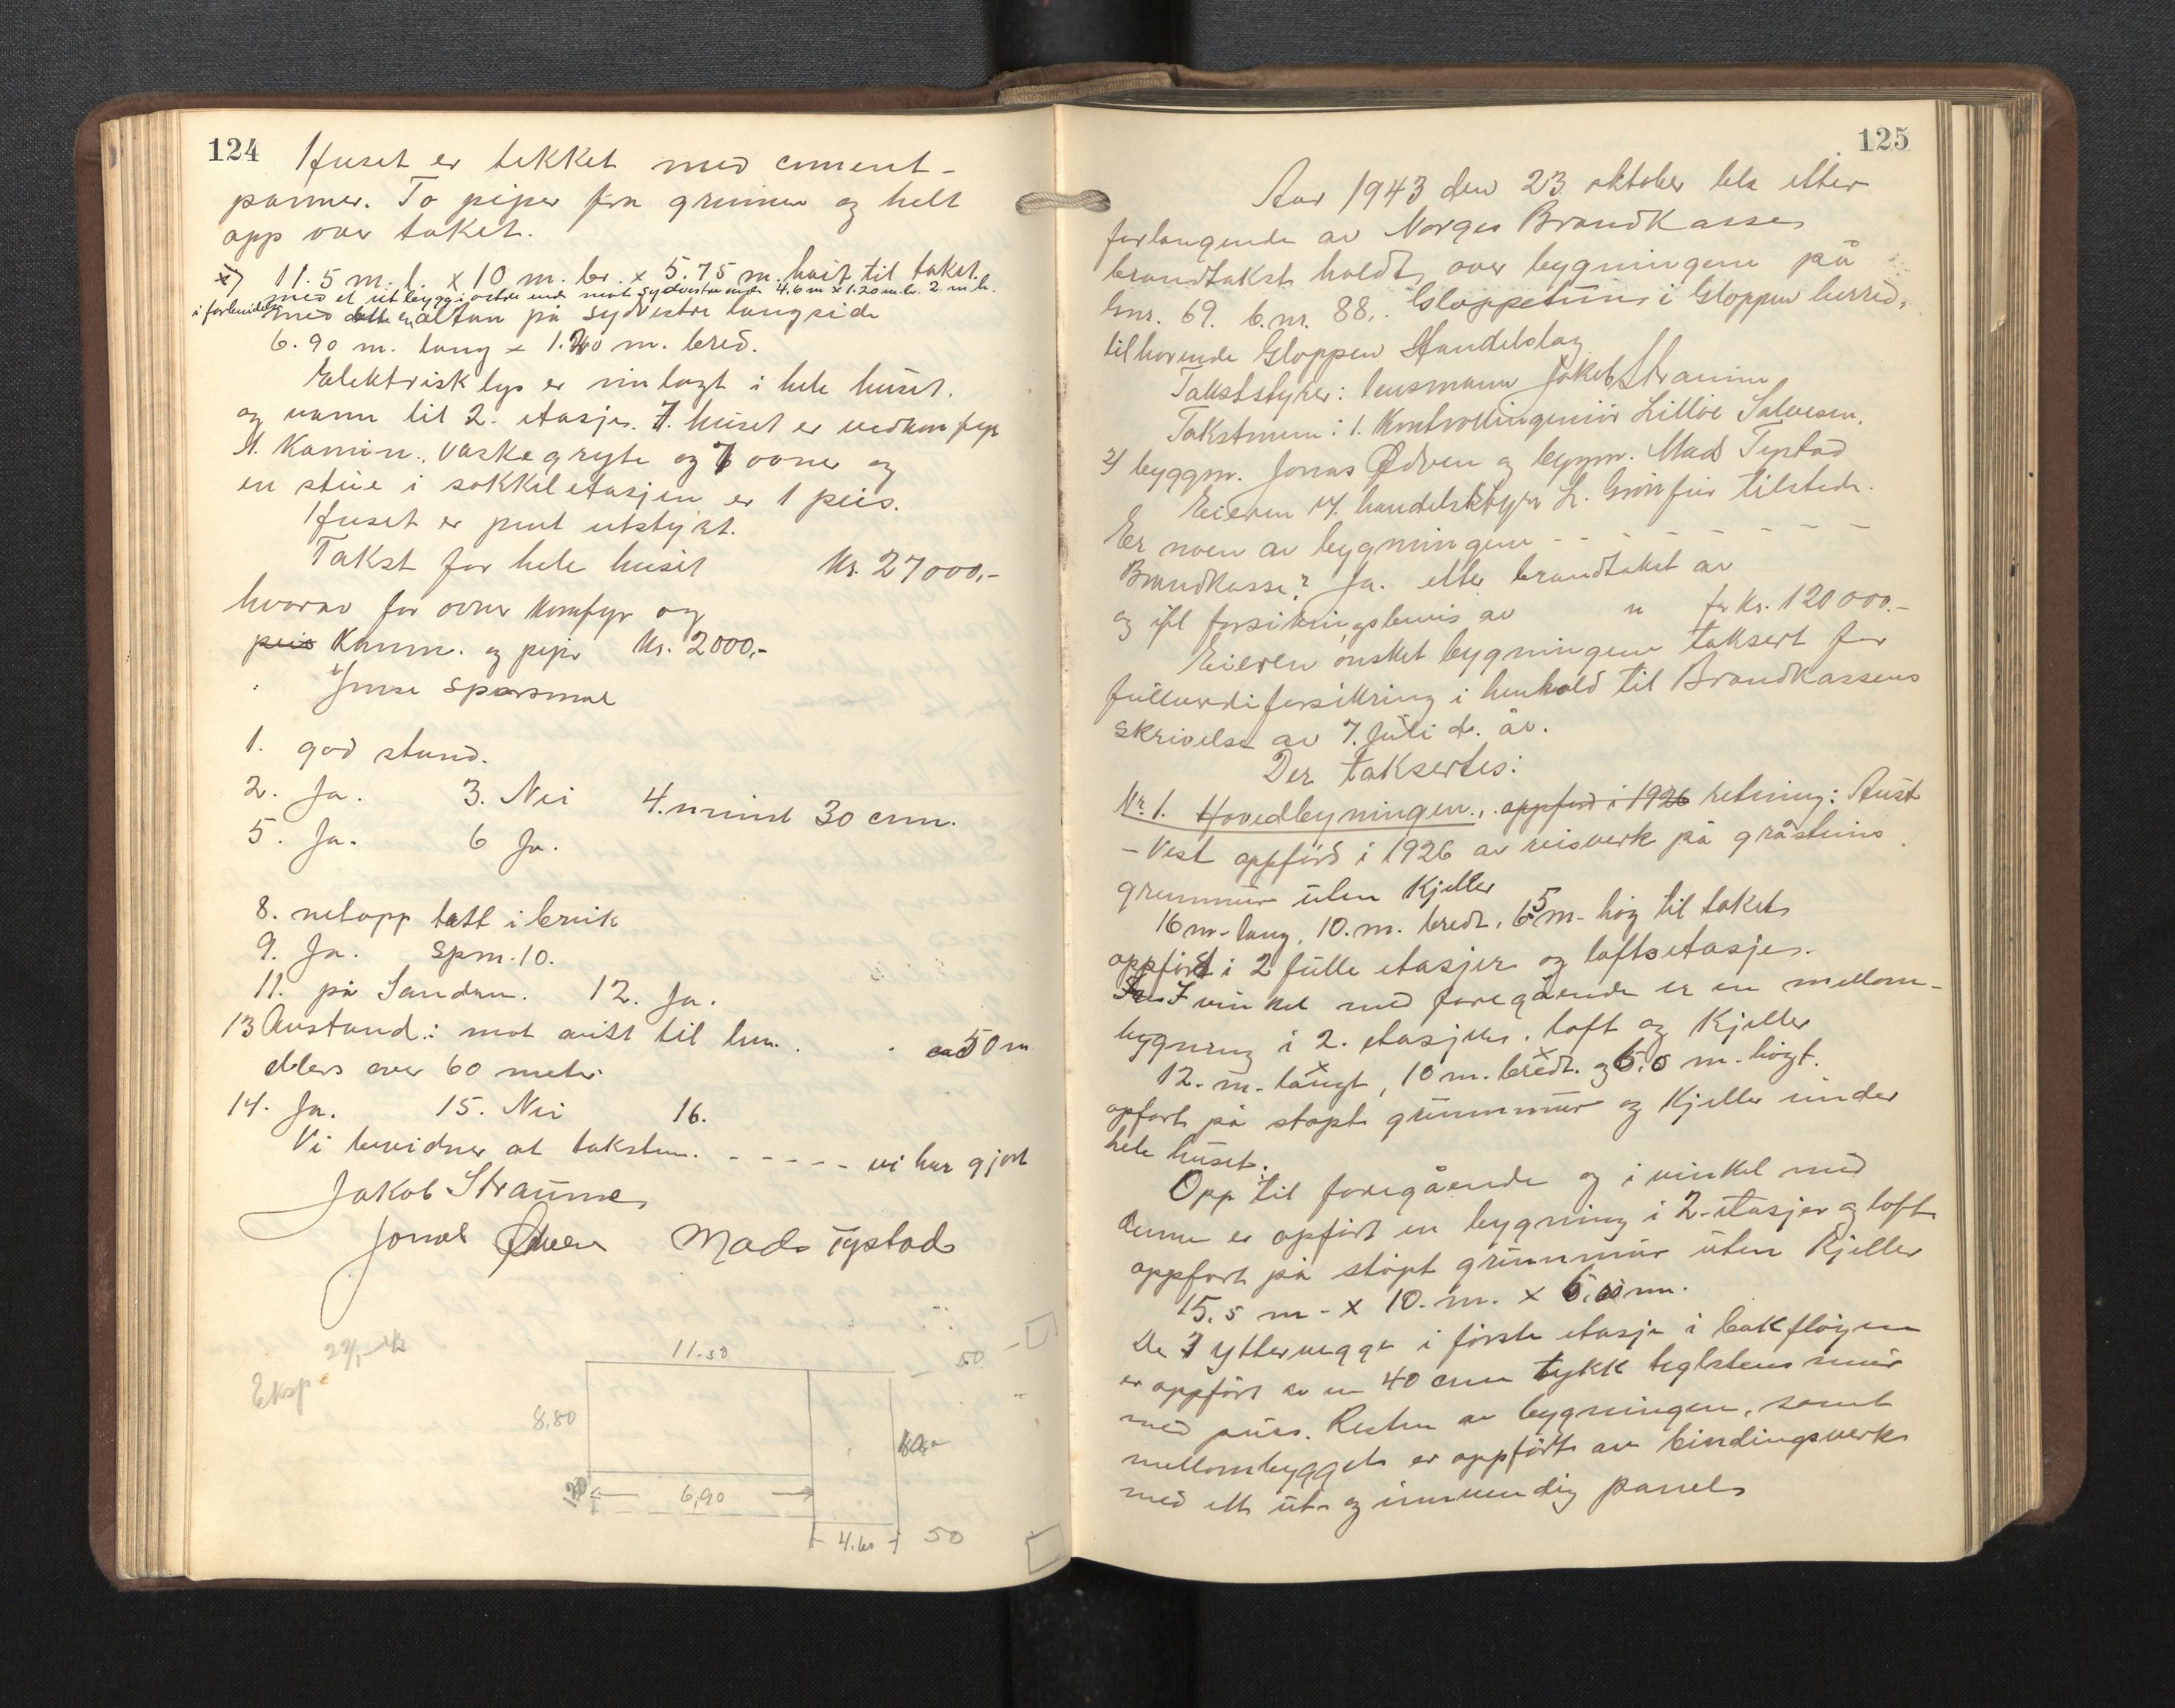 124
Huset er tekket med cement-
panner. To piper fra grunnen og helt
opp over taket.
x) 11.5 m. l. x 10 m. br. x 5.75 m. høit til taket.
med et utbygg i østre ende mot sydvestre ende 4.6 m x 1.20 m. br. 2 m. h.
i forbindelse med dette en altan på sydvestre langside
6.90 m. lang x 1.20 m. bred.
Elektrisk lys er innlagt i hele huset.
og vann til 2. etasje. I huset er vedkomfyr
1. Kamin, vaskegryte og 7 ovner og
en stue i sokkeletasjen er 1 peis.
Huset er pent utstyrt.
Takst for hele huset Kr. 27000,-
hvorav for ovner komfyr og
peis Kamin. og piper Kr. 2000,-
Inse spørsmål
1. god stand.
2. Ja. 3. Nei 4. minst 30 cm.
5. Ja. 6 Ja.
8. netopp tatt i bruk
9. Ja. Spm. 10.
11. på Sandane. 12. Ja.
13 Avstand: mot aust til 50 m
ellers over 60 meter
14. Ja. 15. Nei 16.
Vi bevidner at taksten. - - - - - vi har gjort
Jakob Straume
Jonas Ødven Mads Tystad
Eksp.
11.50
50
8.80
1.20
6,90
4.60
50
125
Aar 1943 den 23. oktober ble etter
forlangende av Norges Brandkasse
brandtakst holdt over bygningene på
Gnr. 69. b.nr. 88. Gloppetun i Gloppen herred,
tilhørende Gloppen Handelslag
Takststyrer: lensmann Jakob Straume
Takstmenn: 1. Kontrollingeniør Lilloe Salvesen.
2/ byggm. Jonas Ødven og byggm. Mads Tystad
Eieren v/ handelsstyrer L. Grønfur tilstede.
Er noen av bygningene - - - - - - - -
Brandkasse? Ja. etter brandtakst av
og ifl forsikringsbevis av " for Kr. 120000.-
Eieren ønsket bygningene taksert for
fullverdiforsikring i henhold til Brandkassens
skrivelse av 7. Juli d. år.
Der taksertes:
Nr. 1. Hovedbygningen., oppførd i 1926 retning: Aust
- Vest oppførd i 1926 av reisverk på gråsteins
grunnmur uten Kjeller
16 m. lang, 10. m. bredt, 6.5 m. høg til taket
oppført i 2 fulle etasjer og loftsetasje.
I vinkel med foregående er en mellom-
bygning i 2. etasjer, loft og Kjeller
12. m. langt, 10 m. bredt. og 6.0 m. høgt.
opført på støpt grunnmur og Kjeller under
hele huset.
Opp til foregående og i vinkel med
denne er opført en bygning i 2. etasjer og loft
oppført på støpt grunnmur uten Kjeller
15.5 m - x 10. m. x 6.00 m.
De 3 yttervegge i første etasje i bakfløyen
er oppført av en 40 cm tykk teglstens mur
med puss. Resten av bygningen, samt
mellombygget er oppført av bindingsverk
med ett ut- og innvendig panel